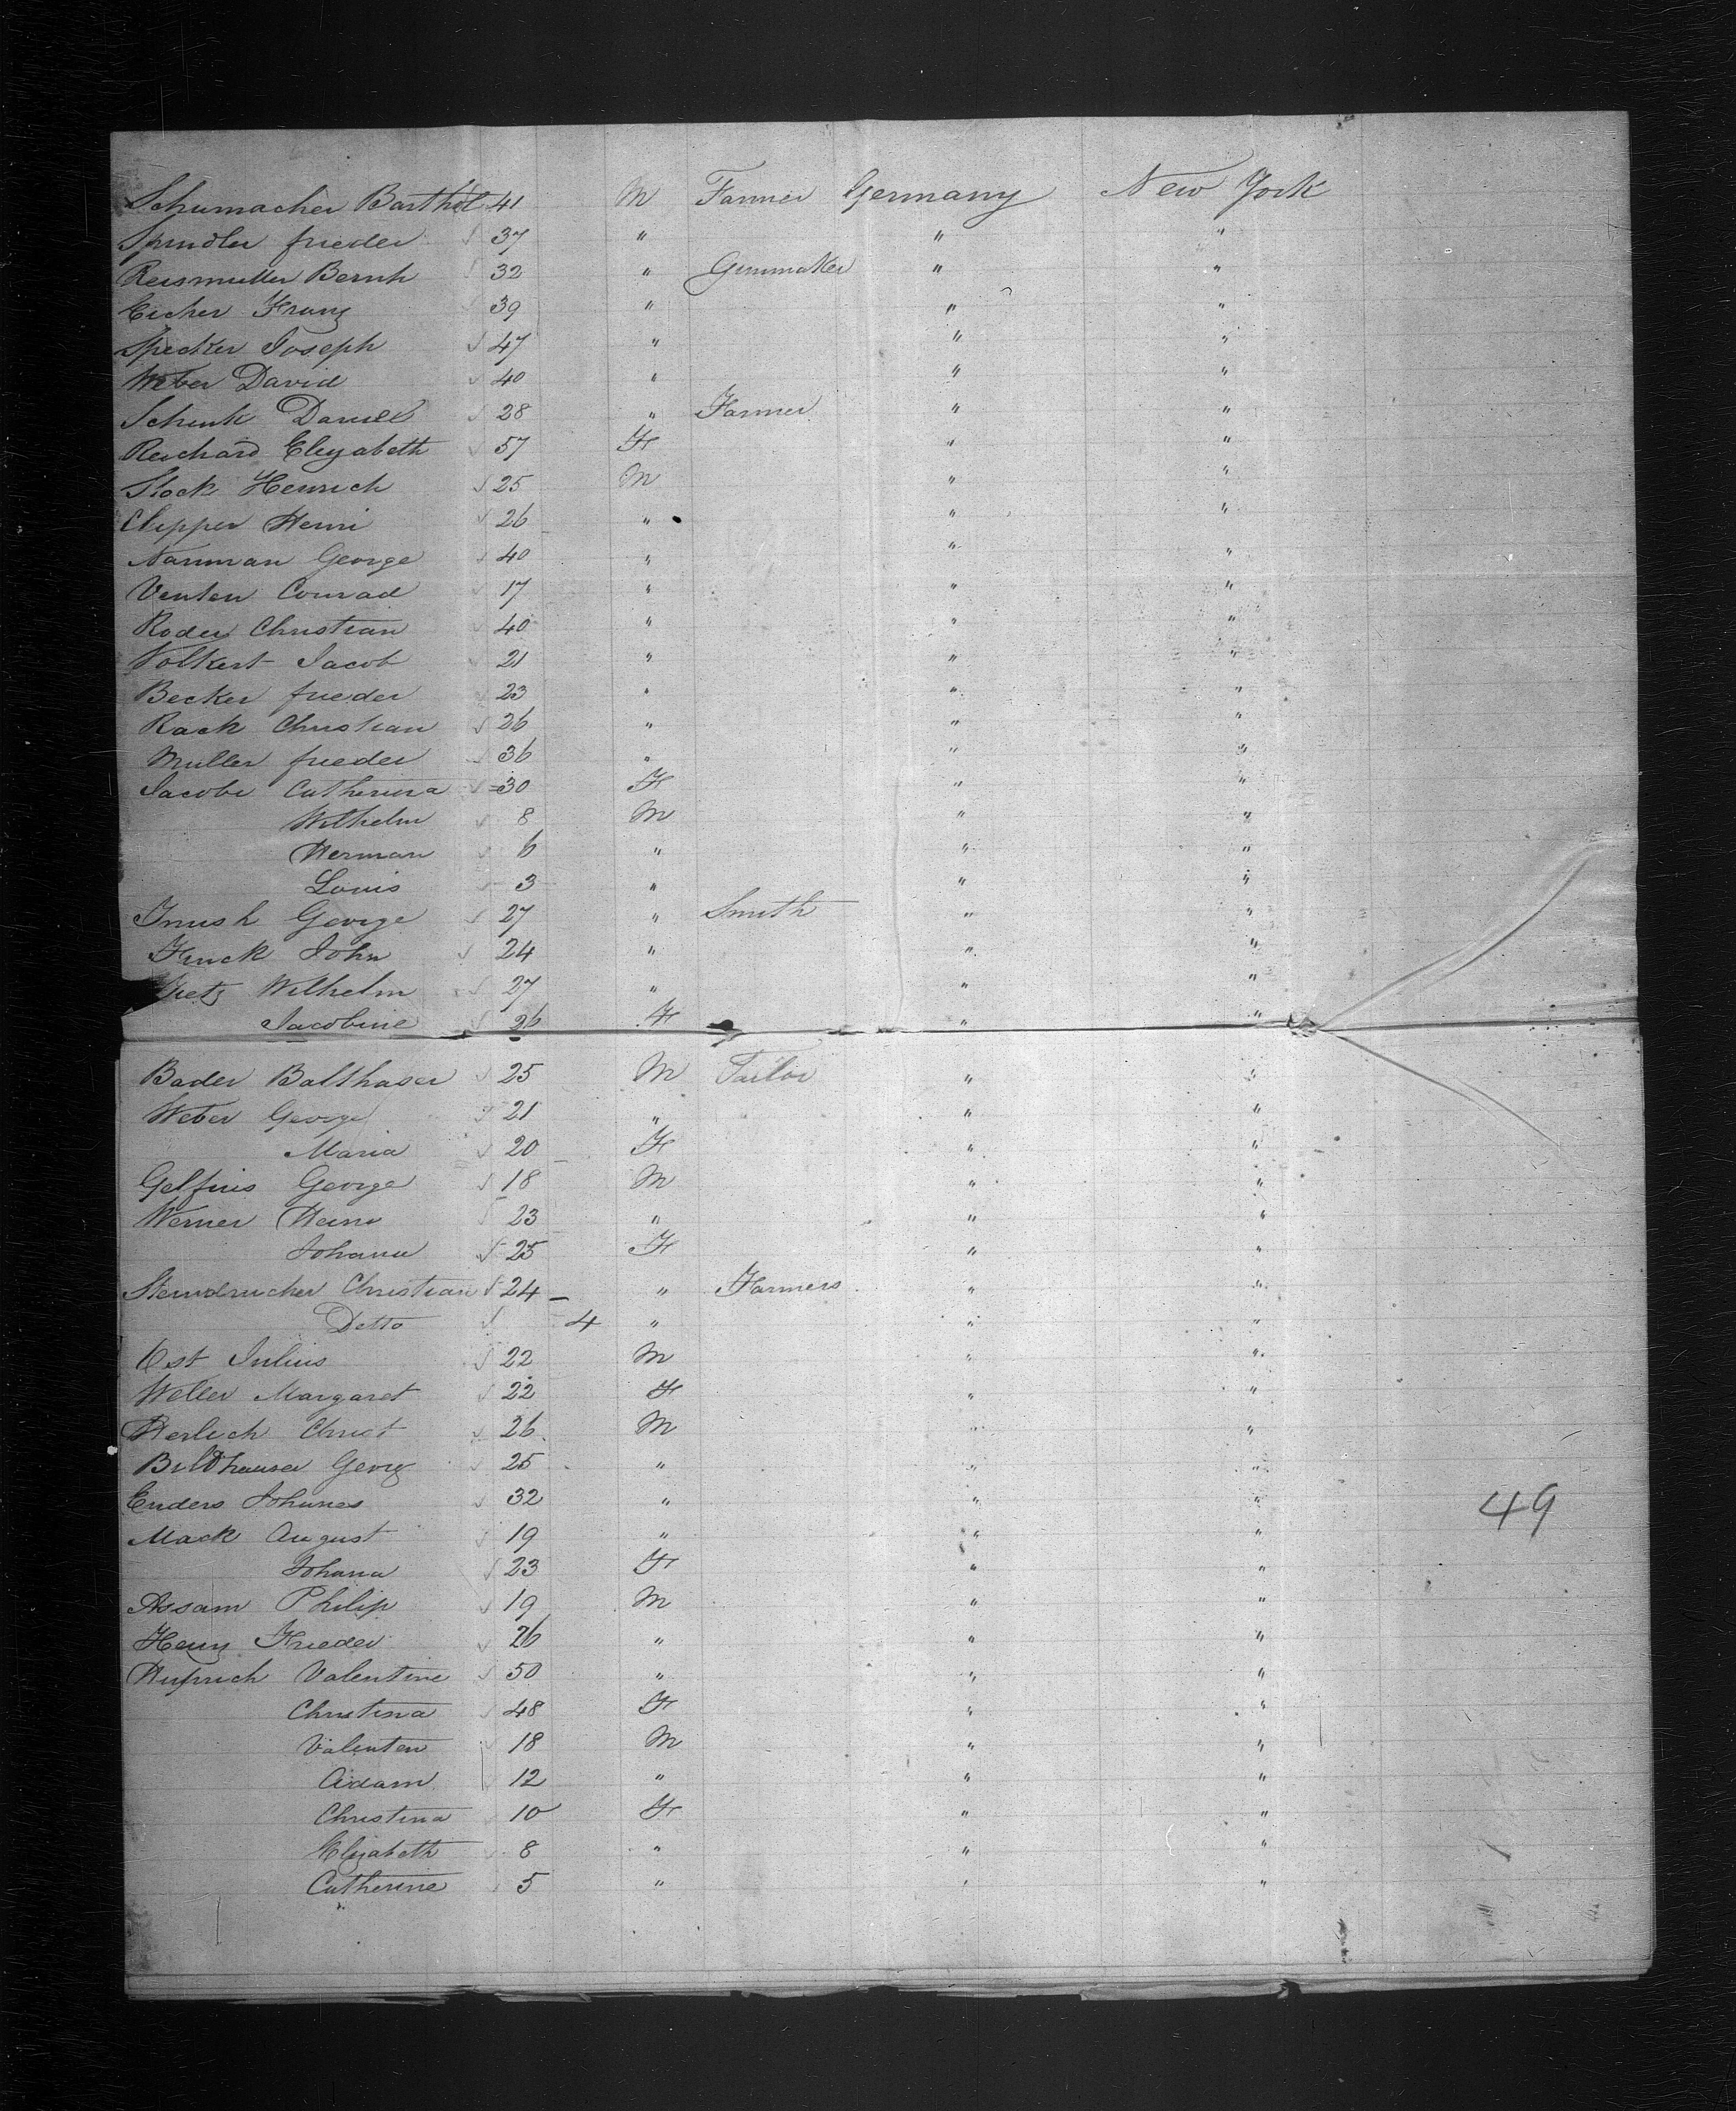 Schumacher Barthol 41 M Farmer Germany New York
Spindler frieder 37 " " "
Reismuller Bernh 32 " Gunmaker " "
Eicher Franz 39 " " "
Specker Joseph 47 " " "
Weber David 40 " " "
Schenk Daniel 28 " Farmer " "
Reichard Elizabeth 57 F " "
Stock Henrich 25 M " "
Clipper Henri 26 " " "
Nanman George 40 " " "
Venten Conrad 17 " " "
Roder Christian 40 " " "
Volkert Jacob 21 " " "
Becker frieder 23 " " "
Rack Christian 26 " " "
Muller frieder 36 " " "
Jacobi Catherina 30 F " "
Wilhelm 8 M " "
Herman 6 " " "
Louis 3 " " "
George 27 " Smith " "
Funck John 24 " " "
Wilhelm 27 " " "
Jacobine 26 F " "
Bader Balthaser 25 M Tailor " "
Weber George 21 " " "
Maria 20 F " "
Gelfius George 18 M " "
Werner Henri 23 " " "
Johann 25 F " "
Christian 24 " Farmers " "
Detto 4 " " "
Ost Julius 22 M " "
Weller Margaret 22 F " "
Herlich Christ 26 M " "
Bildhauser Georg 25 " " "
Enders Johanes 32 " " "
49
Mack August 19 " " "
Johana 23 F " "
Assam Philip 19 M " "
Henz Frieder 26 " " "
Valentine 50 " " "
Christina 48 F " "
Valenten 18 M " "
Adam 12 " " "
Christina 10 F " "
Elizabeth 8 " " "
Catherine 5 " " "